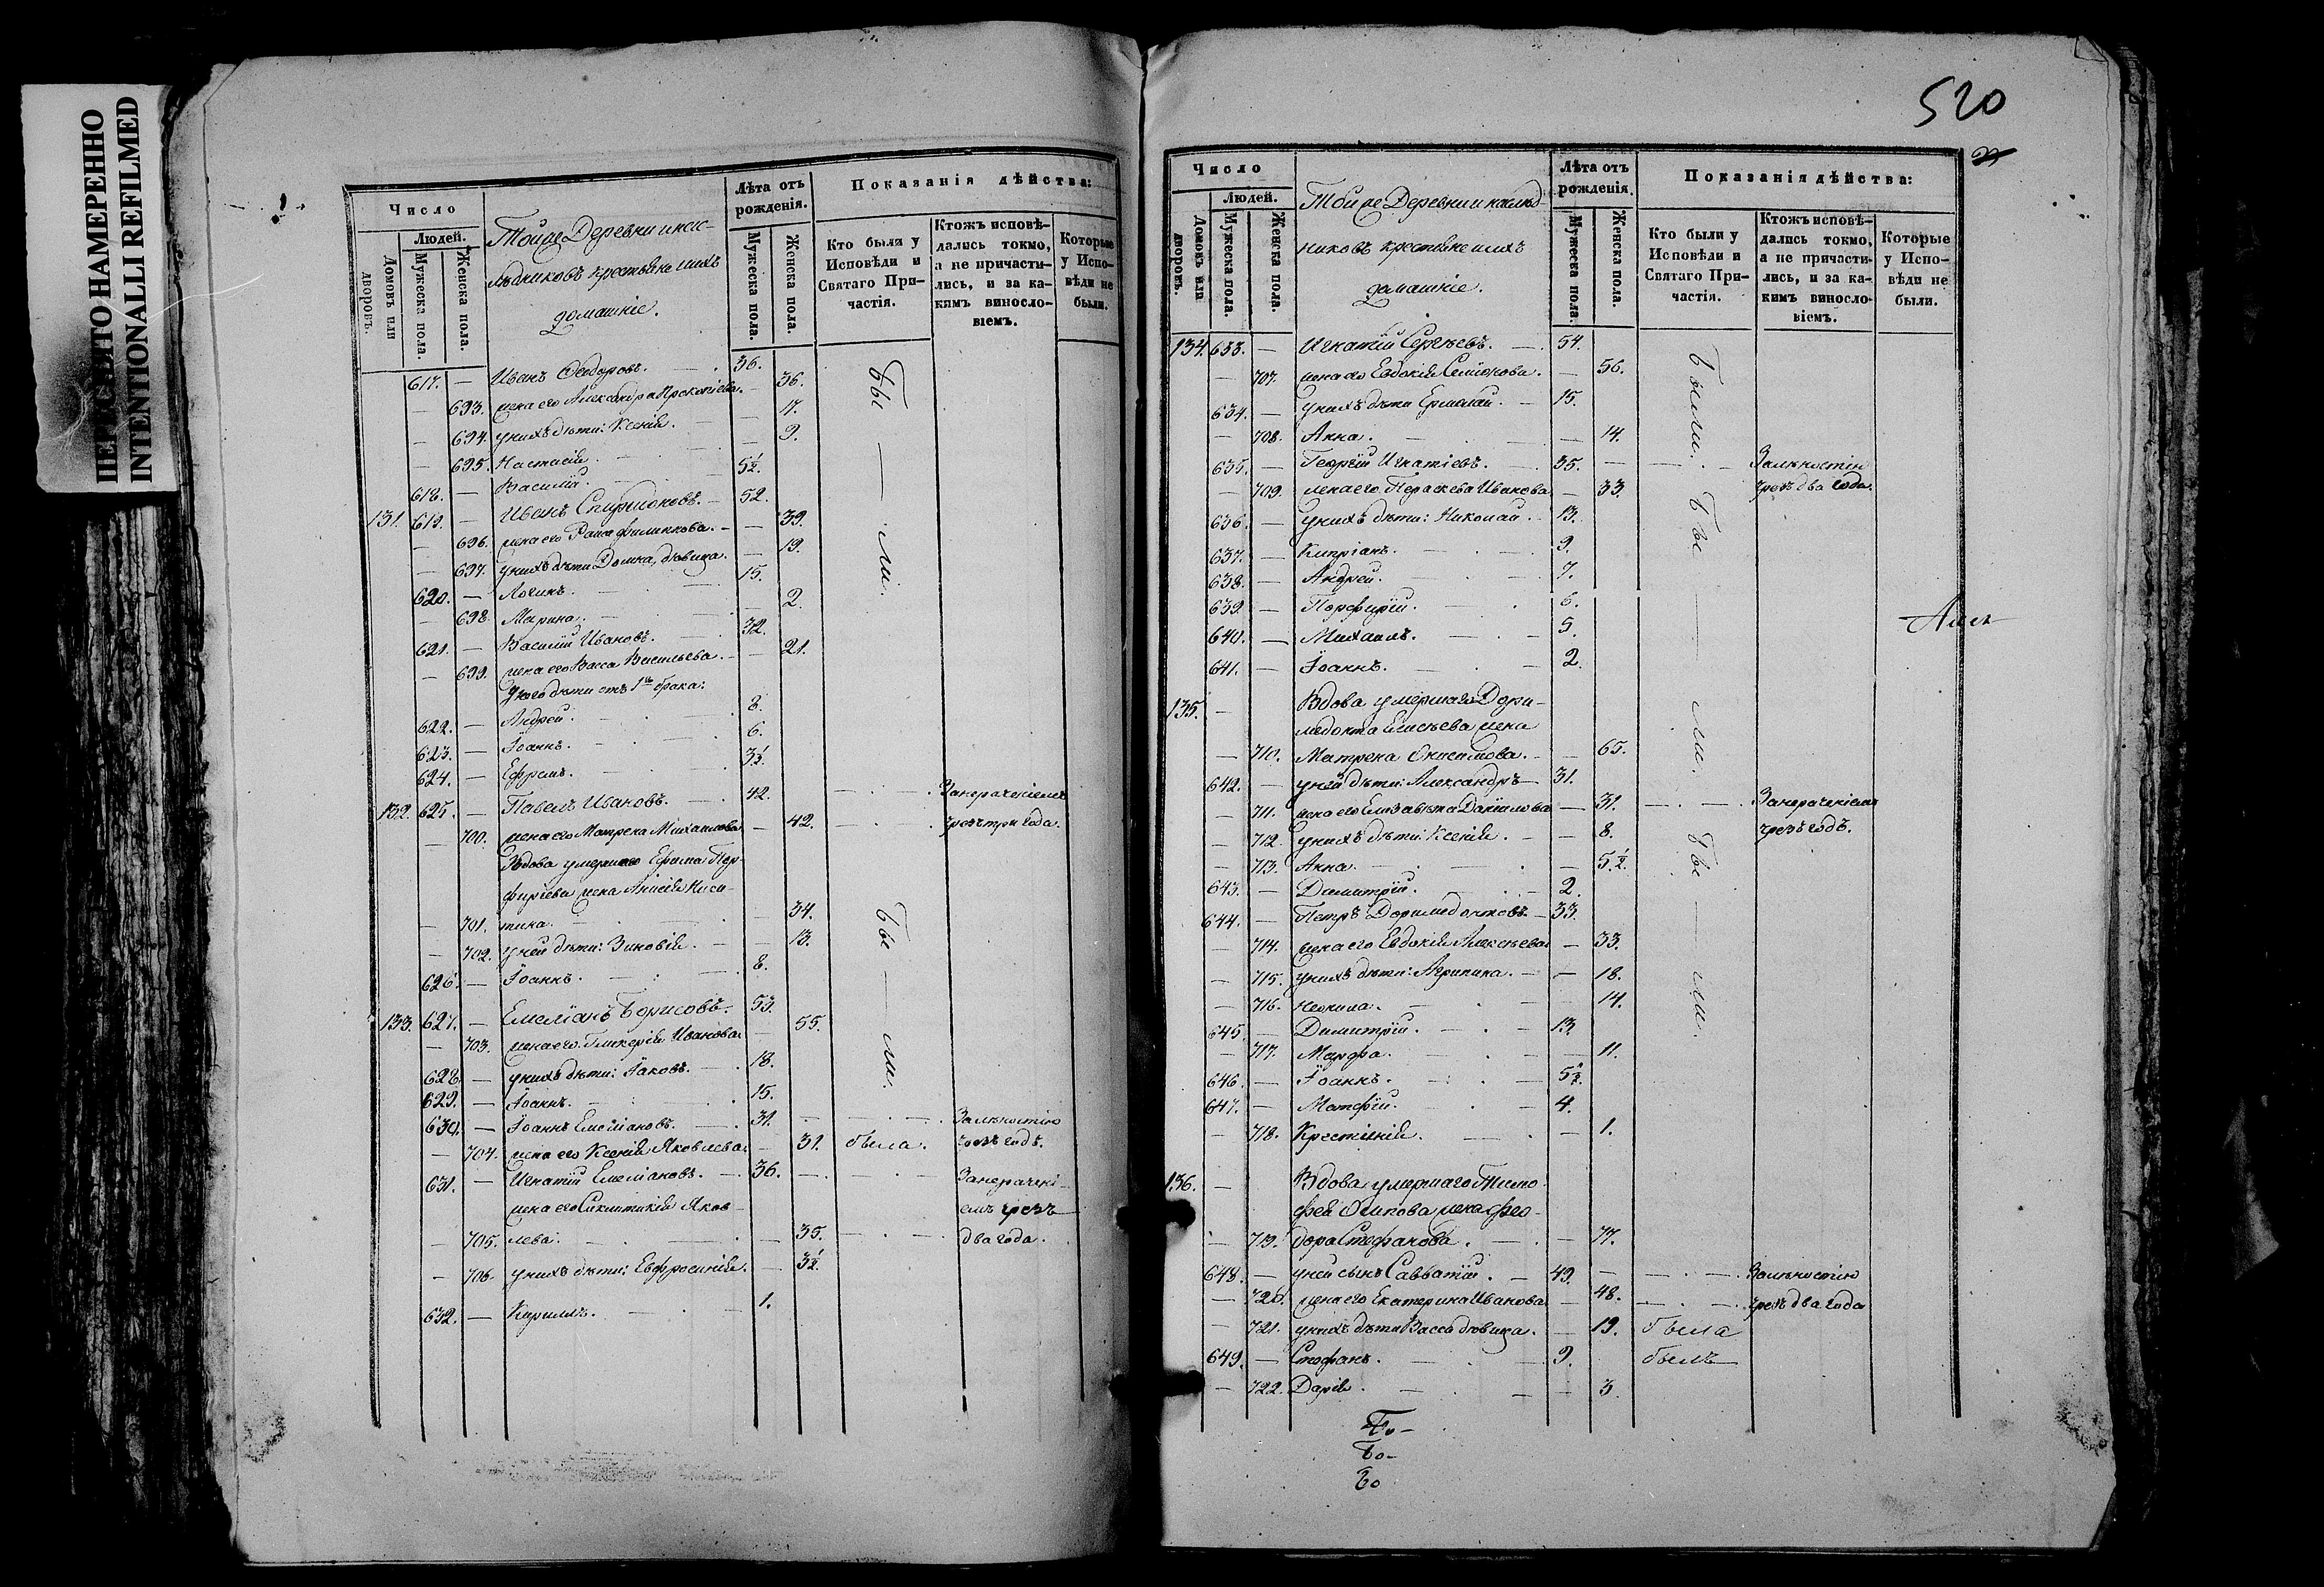 ПЕРЕСНЯТО НАМЕРЕННО
INTENTIONALLI REFILMED
Число
Людей.
Домовъ или дворовъ.
Мужеска пола.
Женска пола.
Тойже Деревни и нас-
лѣдниковъ крестьяне и ихъ
домашніе.
Лѣта отъ рожденія.
Мужеска пола.
Женска пола.
Показанія дѣйства:
Кто были у Исповѣди и Святаго Причастія.
Ктожъ исповѣ-
дались токмо,
а не причасти-
лись, и за ка-
кимъ винсло-
віемъ.
Которые
у Испо-
вѣди не
были.
617. — Иванъ Ѳеодоровъ. 36.
— 693. жена его Александра Прокопіева. — 36.
— 694. у нихъ дѣти: Ксенія. — 17.
— 695. Настасія. — 9.
618. — Василій. 5½.
Бы — ли.
131. 619. — Иванъ Спиридоновъ. 52.
— 696. жена его Раиса Филиппова. — 39.
— 697. у нихъ дѣти Домна, дѣвица. — 19.
620. — Логинъ. 15.
— 698. Марина. — 2.
621. — Василій Ивановъ. 32.
— 699. жена его Васса Васильева. — 21.
У него дѣти отъ 1го брака:
622. — Андрей. 8.
623. — Іоаннъ. 6.
624. — Ефремъ. 3½.
132. 625. — Павелъ Ивановъ. 42. За нераченіемъ
— 700. жена его Матрена Михаилова — 42. чрезъ три года.
Вдова умершаго Ефима Пор-
фиріева жена Анисія Ники-
— 701. тина. — 34.
— 702. у ней дѣти: Зиновія. — 13.
626. — Іоаннъ. 8.
Бы — ли.
133. 627. — Емеліанъ Борисовъ. 53.
— 703. жена его Гликерія Иванова — 55.
628. — у нихъ дѣти: Іаковъ. 18.
629. — Іоаннъ. 15.
630. — Іоаннъ Емеліановъ. 31. За лѣностію
— 704. жена его Ксенія Яковлева — 31. была. чрезъ годъ.
631. — Игнатій Емеліановъ. 36. За нерачені-
жена его Синклитикія Яков- емъ чрезъ
— 705. лева. — 35. два года.
— 706. у нихъ дѣти: Евфросинія. — 3½.
632. — Кириллъ. 1.
520
Число
Людей.
Домовъ или дворовъ.
Мужеска пола.
Женска пола.
Тойже Деревни и наслѣд-
никовъ крестьяне и ихъ
домашніе.
Лѣта отъ рожденія.
Мужеска пола.
Женска пола.
Показанія дѣйства:
Кто были у Исповѣди и Святаго Причастія.
Ктожъ исповѣ-
дались токмо,
а не причасти-
лись, и за ка-
кимъ винсло-
віемъ.
Которые
у Испо-
вѣди не
были.
134. 633. — Игнатій Сергѣевъ. 54.
— 707. жена его Евдокія Семіонова. — 56.
634. — у нихъ дѣти Ермолай. 15.
— 708. Анна. — 14.
Были.
635. — Георгій Игнатіевъ. 35. — За лѣностію
— 709. жена его Параскева Иванова — 33. чрезъ два года.
636. — у нихъ дѣти: Николай. 13.
637. — Кипріанъ. 9.
638. — Андрей. 7.
639. — Порфирій. 6.
640. — Михаилъ. 5.
641. — Іоаннъ. 2.
Бы — ли.
135. — Вдова умершаго Дори-
медонта Елисѣева жена
— 710. Матрена Онисимова. — 65.
642. — у ней дѣти: Александръ 31.
— 711. жена его Елизавѣта Даніилова — 31. За нераченіемъ
— 712. у нихъ дѣти: Ксенія. — 8. чрезъ годъ.
— 713. Анна. — 5½.
643. — Димитрій. 2.
644. — Петръ Доримедонтовъ. 33.
— 714. жена его Евдокія Алексѣева — 33.
— 715. у нихъ дѣти: Агрипина. — 18.
— 716. Неонила. — 14.
645. — Димитрій. 13.
— 717. Марфа. — 11.
646. — Іоаннъ. 5½.
647. — Матфій. 4.
— 718. Крестинія. — 1.
Бы — ли.
136. — Вдова умершаго Тимо-
фея Осипова жена Фео-
— 719. дора Стефанова. — 77.
648. — у ней сынъ Савватій. 49. — За лѣностію
— 720. жена его Екатерина Иванова — 48. чрезъ два года
— 721. у нихъ дѣти Васса дѣвица. — 19. была
649. — Стефанъ. 9. былъ
— 722. Дарія. — 3